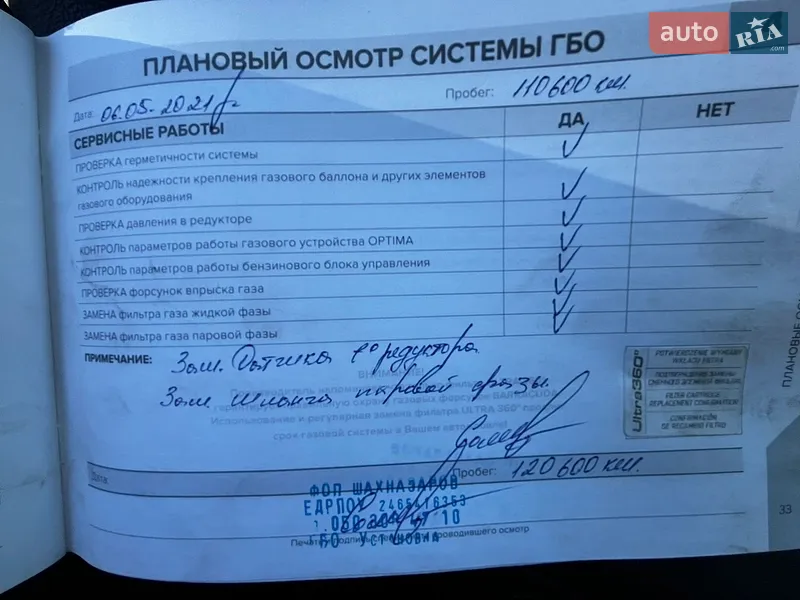 auto RIA .com
ПЛАНОВЫЙ ОСМОТР СИСТЕМЫ ГБО
Дата: 06.05.2021 г Пробег: 110600 км.
СЕРВИСНЫЕ РАБОТЫ ДА НЕТ
ПРОВЕРКА герметичности системы
КОНТРОЛЬ надежности крепления газового баллона и других элементов
газового оборудования
ПРОВЕРКА давления в редукторе
КОНТРОЛЬ параметров работы газового устройства OPTIMA
КОНТРОЛЬ параметров работы бензинового блока управления
ПРОВЕРКА форсунок впрыска газа
ЗАМЕНА фильтра газа жидкой фазы
ЗАМЕНА фильтра газа паровой фазы
ПРИМЕЧАНИЕ: Зам. Датчика t° редуктора
ВНИМАНИЕ!
Зам. шланга паровой фазы.
Использование и регулярная замена фильтра ULTRA 360°
срок газовой системы в Вашем
Ultra360°
POTWIERDZENIE WYMIANY
WKŁADU FILTRA
ПОДТВЕРЖДЕНИЕ ЗАМЕНЫ
СМЕННОГО ЭЛЕМЕНТА ФИЛЬТРА
FILTER CARTRIDGE
REPLACEMENT CONFIRMATION
CONFIRMACIÓN
DE RECAMBIO FILTRO
Дата: Пробег: 120600 км.
ФОП ШАХНАЗАРОВ
ЕДРПОУ 2465416353
ГБО Установка
проводившего осмотр
33